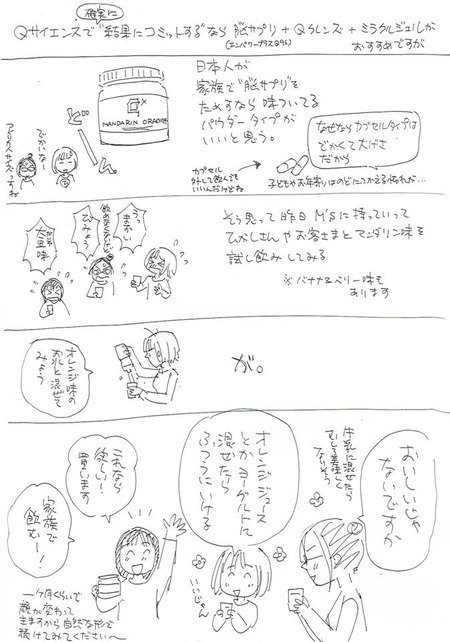 確実に
Qサイエンスで"結果にコミットする"なら 脳サプリ + Qクレンズ + ミラクルジュルが
(エンパワープラスQ96)
おすすめですが
日本人が
家族で"脳サプリ"を
ためすなら 味ついてる
パウダータイプが
いいと思う。
MANDARIN ORANGE
でかいなー
アメリカンサイズっすね
なぜならカプセルタイプは
でかくて大げさ
だから
カプセル
外して飲んでも
いいんだけどね
子どもやお年寄りはのどにつかえる恐れが…
そう思って昨日 M'sに持っていって
ひがしさんやお客さまとマンダリン味を
試し飲みしてみる
※バナナ&ベリー味も
あります
う、
まずい
飲めなくないけど
びみょう
大豆味
が。
オレンジ味の
お乳と混ぜて
みよう
おいしいじゃ
ないですか
牛乳に混ぜたら
むしろ美味しく
ないそう
オレンジジュース
とかヨーグルトに
混ぜたら
ふつうにいける
いいじゃん
これなら
欲しい!
買います
家族で
飲むー!
一ヶ月くらいで
腸が変わって
きますから自然な形で
続けてみてください〜